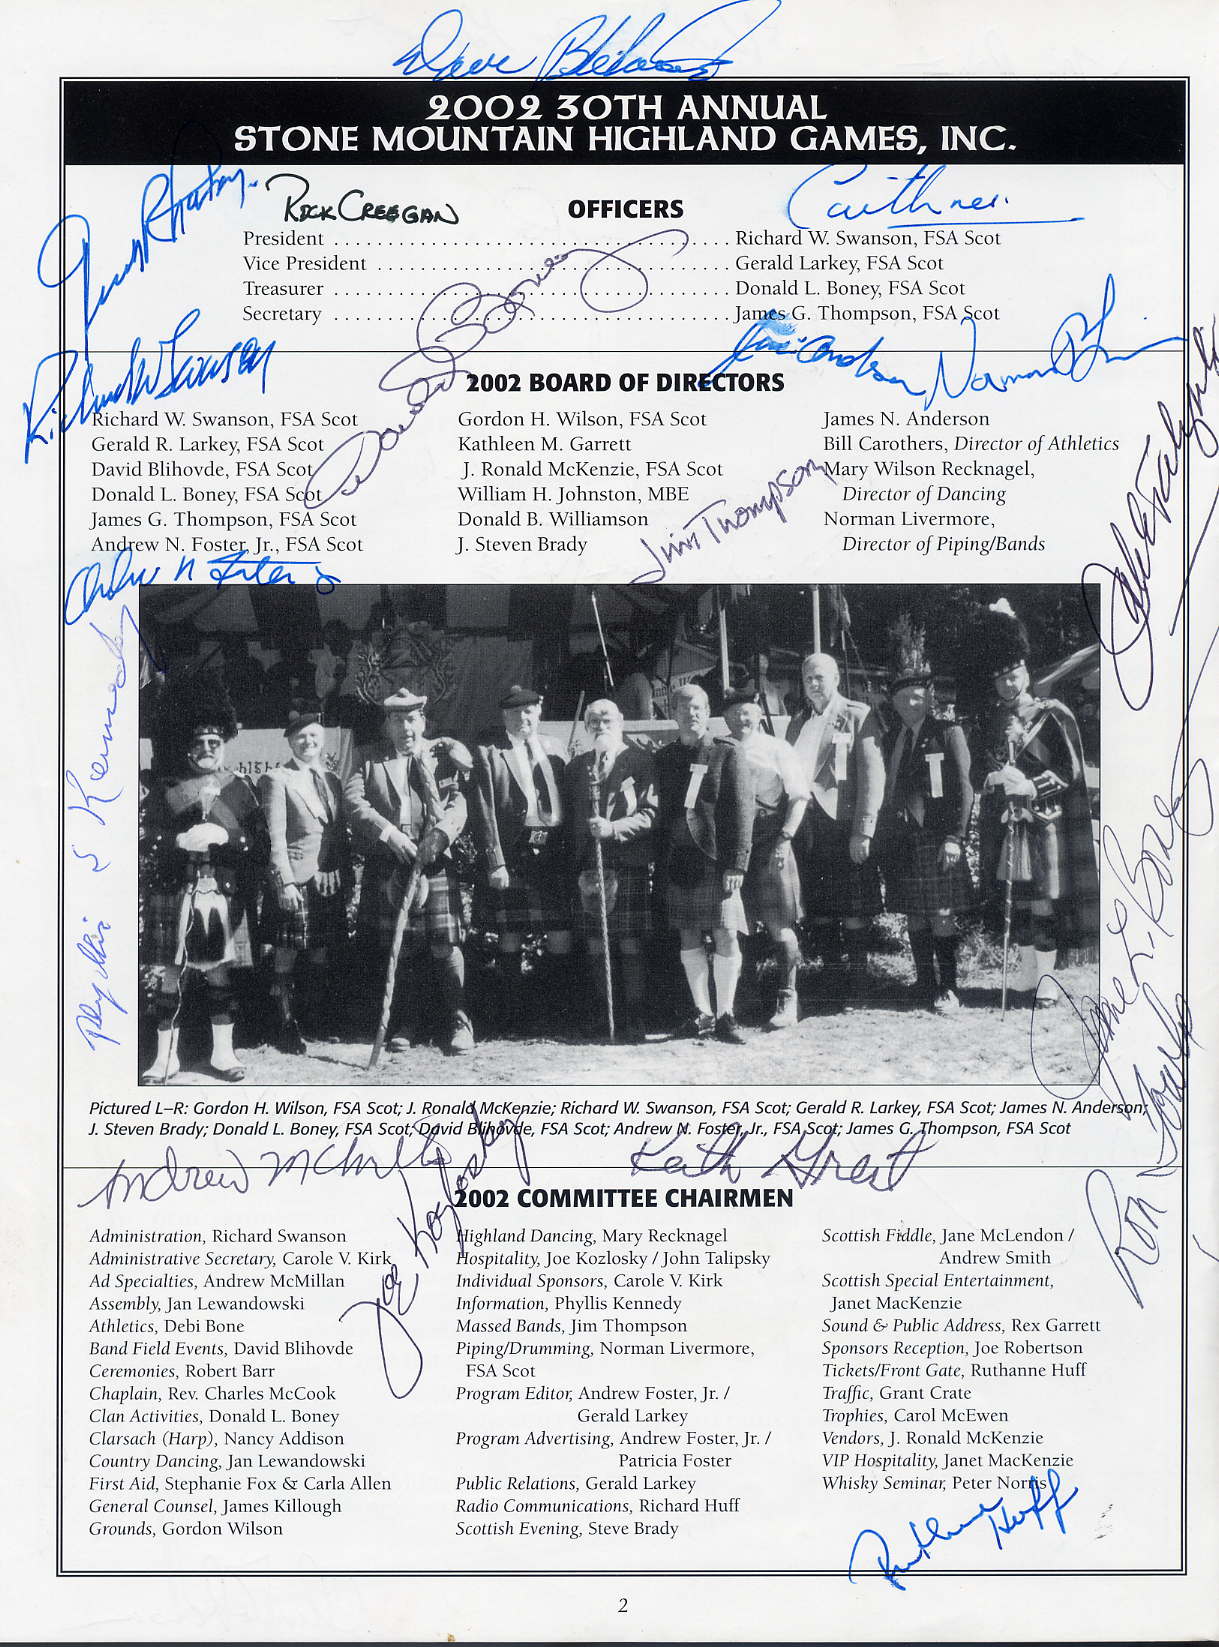 Dave Blihovde
2002 30TH ANNUAL
STONE MOUNTAIN HIGHLAND GAMES, INC.
RICK CREEGAN
Caithness
OFFICERS
President . . . . . . . . . . . . . . . . . . . . . . . . . . . . . . . . . . . . . Richard W. Swanson, FSA Scot
Vice President . . . . . . . . . . . . . . . . . . . . . . . . . . . . . . . . . Gerald Larkey, FSA Scot
Treasurer . . . . . . . . . . . . . . . . . . . . . . . . . . . . . . . . . . . . . Donald L. Boney, FSA Scot
Secretary . . . . . . . . . . . . . . . . . . . . . . . . . . . . . . . . . . . . . James G. Thompson, FSA Scot
Richard W Swanson
Donald Boney
Jim Anderson
Norman
2002 BOARD OF DIRECTORS
Richard W. Swanson, FSA Scot
Gerald R. Larkey, FSA Scot
David Blihovde, FSA Scot
Donald L. Boney, FSA Scot
James G. Thompson, FSA Scot
Andrew N. Foster, Jr., FSA Scot
Gordon H. Wilson, FSA Scot
Kathleen M. Garrett
J. Ronald McKenzie, FSA Scot
William H. Johnston, MBE
Donald B. Williamson
J. Steven Brady
James N. Anderson
Bill Carothers, Director of Athletics
Mary Wilson Recknagel,
Director of Dancing
Norman Livermore,
Director of Piping/Bands
Jim Thompson
Andrew N Foster Jr
Phyllis S Kennedy
Pictured L–R: Gordon H. Wilson, FSA Scot; J. Ronald McKenzie; Richard W. Swanson, FSA Scot; Gerald R. Larkey, FSA Scot; James N. Anderson;
J. Steven Brady; Donald L. Boney, FSA Scot; David Blihovde, FSA Scot; Andrew N. Foster, Jr., FSA Scot; James G. Thompson, FSA Scot
Andrew McMillan
Joe Kozlosky
Keith Grant
Ron
2002 COMMITTEE CHAIRMEN
Administration, Richard Swanson
Administrative Secretary, Carole V. Kirk
Ad Specialties, Andrew McMillan
Assembly, Jan Lewandowski
Athletics, Debi Bone
Band Field Events, David Blihovde
Ceremonies, Robert Barr
Chaplain, Rev. Charles McCook
Clan Activities, Donald L. Boney
Clarsach (Harp), Nancy Addison
Country Dancing, Jan Lewandowski
First Aid, Stephanie Fox & Carla Allen
General Counsel, James Killough
Grounds, Gordon Wilson
Highland Dancing, Mary Recknagel
Hospitality, Joe Kozlosky / John Talipsky
Individual Sponsors, Carole V. Kirk
Information, Phyllis Kennedy
Massed Bands, Jim Thompson
Piping/Drumming, Norman Livermore,
FSA Scot
Program Editor, Andrew Foster, Jr. /
Gerald Larkey
Program Advertising, Andrew Foster, Jr. /
Patricia Foster
Public Relations, Gerald Larkey
Radio Communications, Richard Huff
Scottish Evening, Steve Brady
Scottish Fiddle, Jane McLendon /
Andrew Smith
Scottish Special Entertainment,
Janet MacKenzie
Sound & Public Address, Rex Garrett
Sponsors Reception, Joe Robertson
Tickets/Front Gate, Ruthanne Huff
Traffic, Grant Crate
Trophies, Carol McEwen
Vendors, J. Ronald McKenzie
VIP Hospitality, Janet MacKenzie
Whisky Seminar, Peter Norris
Ruthanne Huff
2